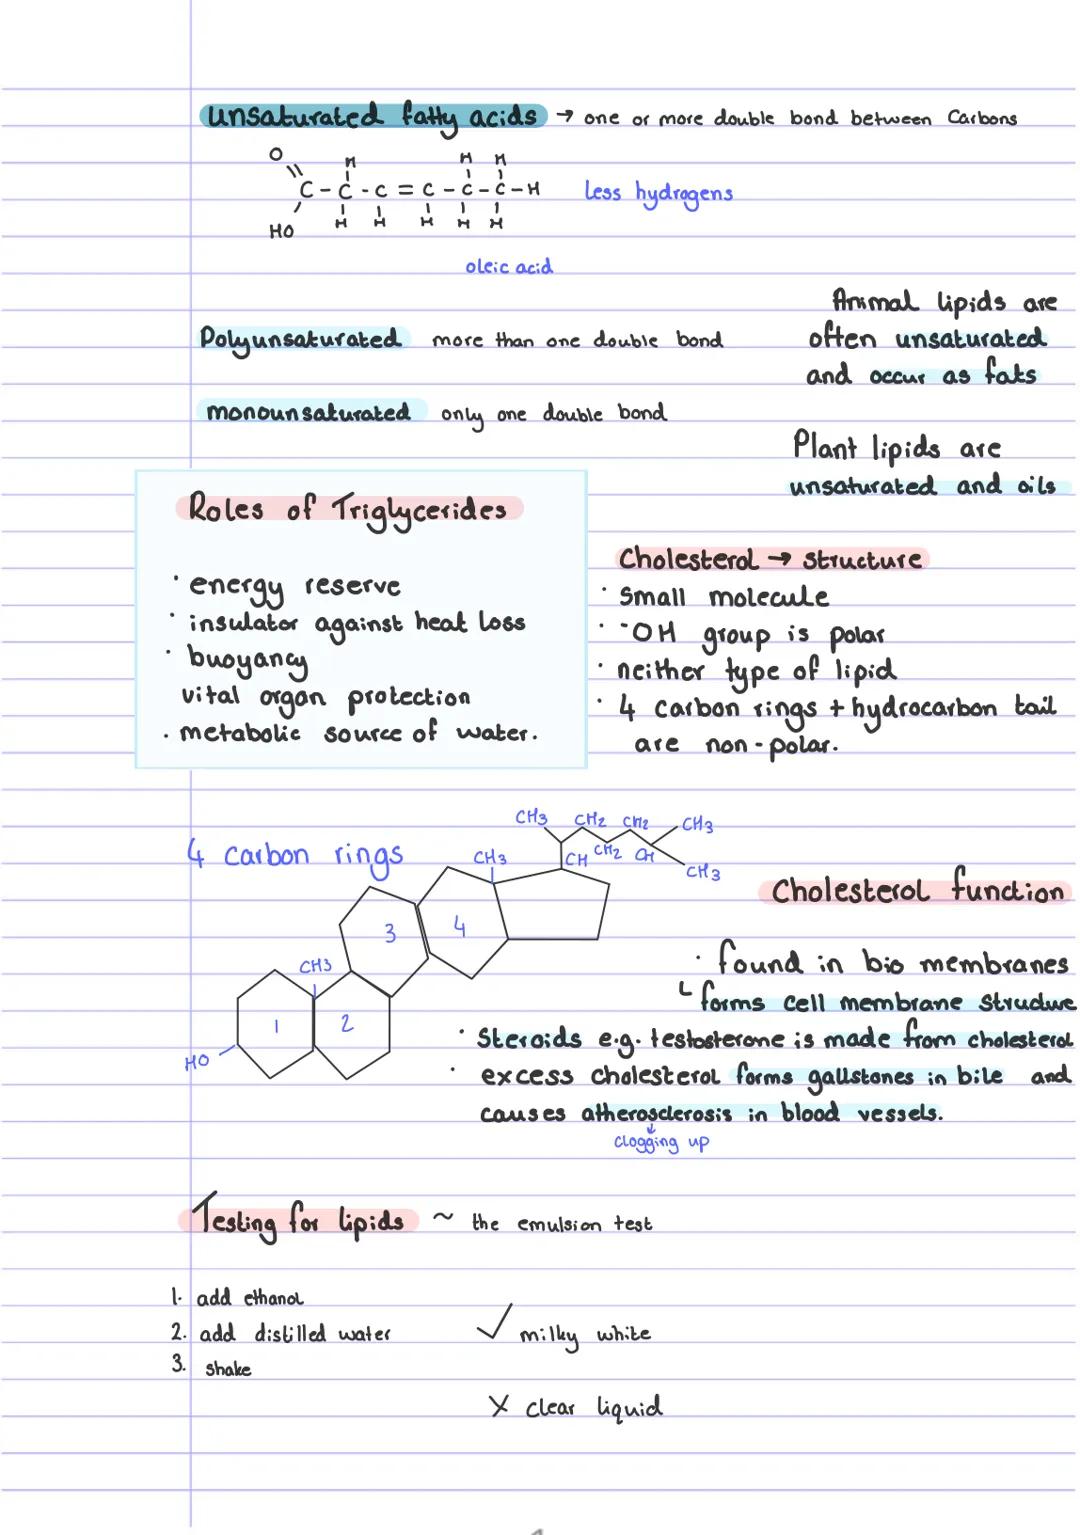 unsaturated fatty acids → one or more double bond between Carbons
O H H H
C - C - C = C - C - C - H
HO H H H H H
less hydrogens
oleic acid
Animal lipids are
often unsaturated
and occur as fats
Polyunsaturated more than one double bond
monounsaturated only one double bond
Plant lipids are
unsaturated and oils
Roles of Triglycerides
· energy reserve
· insulator against heat loss
· buoyancy
vital organ protection
· metabolic source of water.
Cholesterol → structure
· small molecule
· -OH group is polar
· neither type of lipid
· 4 carbon rings + hydrocarbon tail
are non-polar.
4 carbon rings
CH3 CH2 CH2 CH3
CH3 CH CH2 CH CH3
3 4
CH3
1 2
HO
Cholesterol function
· found in bio membranes
↳ forms cell membrane structure
· Steroids e.g. testosterone is made from cholesterol
· excess cholesterol forms gallstones in bile and
causes atherosclerosis in blood vessels.
↓
clogging up
Testing for lipids ~ the emulsion test
1. add ethanol
2. add distilled water ✓ milky white
3. shake
X clear liquid